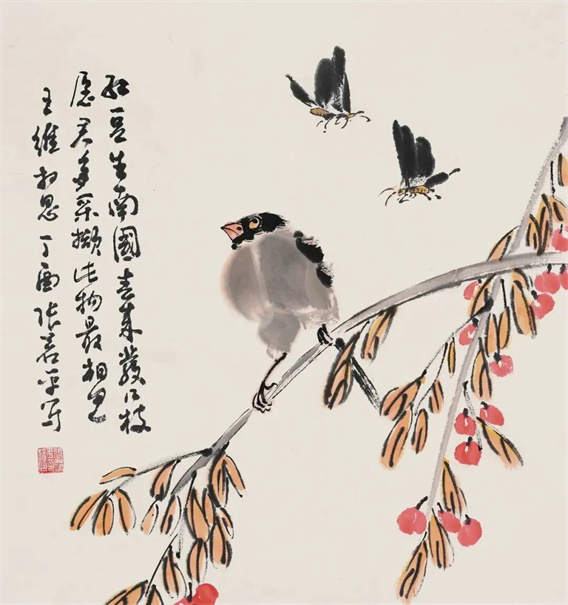 红豆生南國春来發几枝
愿君多采撷此物最相思
王維相思丁酉张善平写